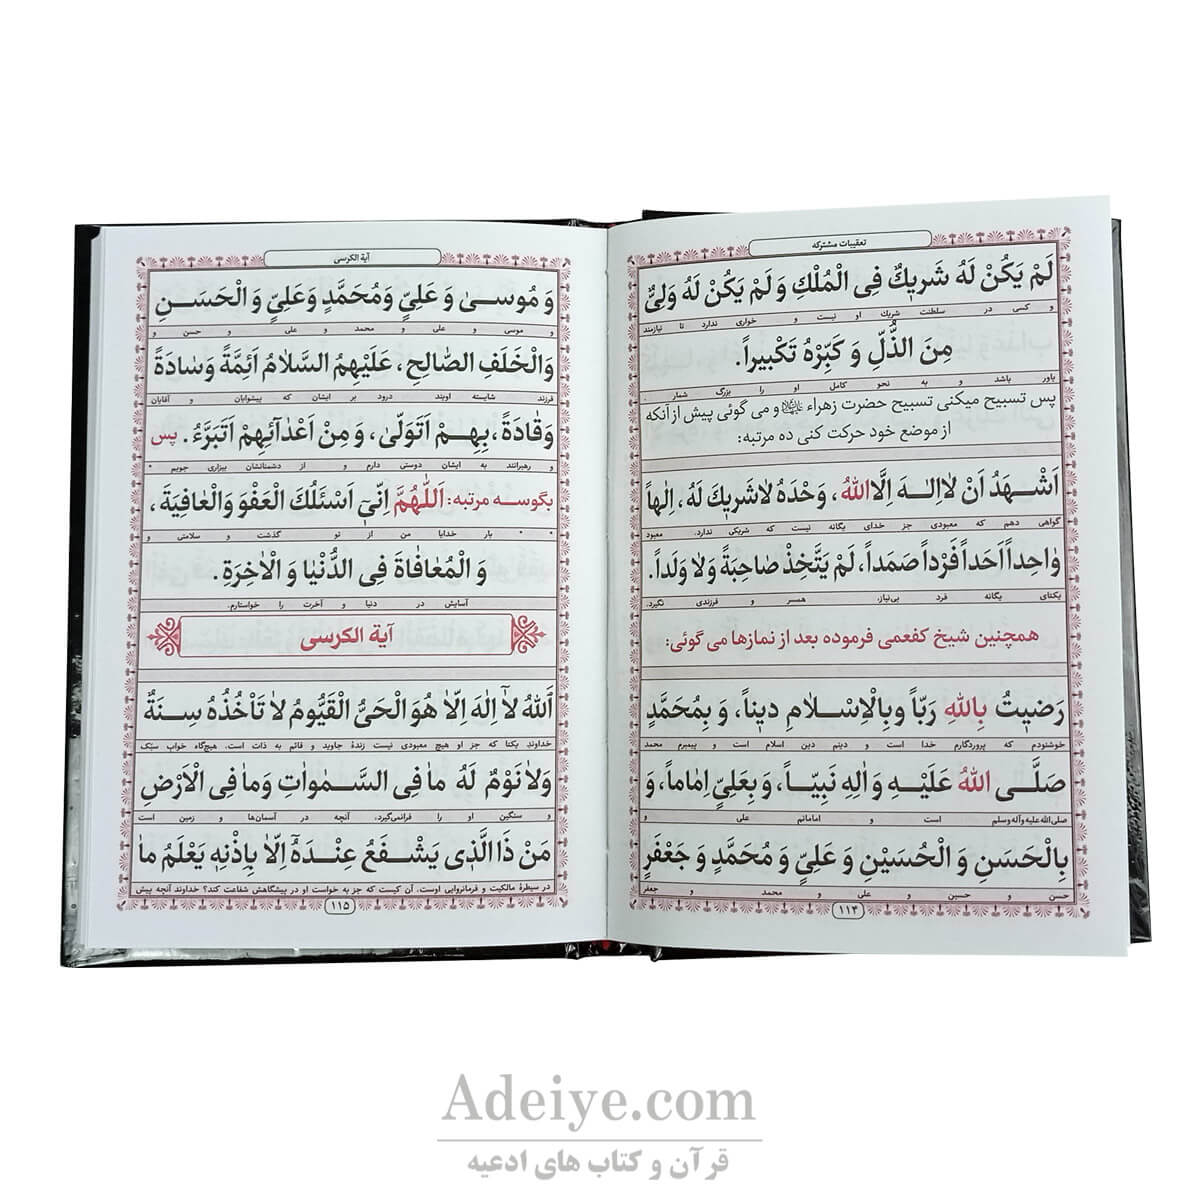 تعقیبات مشترکه
لَمْ يَكُنْ لَهُ شَريكٌ فِى الْمُلْكِ وَ لَمْ يَكُنْ لَهُ وَلِىٌّ
و کسی در سلطنت شریک او نیست و خواری ندارد تا نیازمند
مِنَ الذُّلِّ وَ كَبِّرْهُ تَكْبيراً.
یاور باشد و به نحو کامل او را بزرگ شمار .
پس تسبیح میکنی تسبیح حضرت زهراء و می گوئی پیش از آنکه
از موضع خود حرکت کنی ده مرتبه:
اَشْهَدُ اَنْ لااِلهَ اِلَّااللهُ، وَحْدَهُ لاشَريكَ لَهُ، اِلهاً
گواهی دهم که معبودی جز خدای یگانه نیست که شریکی ندارد. معبود
واحِداً اَحَداً فَرْداً صَمَداً، لَمْ يَتَّخِذْ صاحِبَةً وَلا وَلَداً.
یکتای یگانه فرد بی‌نیاز. همسر و فرزندی نگیرد.
همچنین شیخ کفعمی فرموده بعد از نمازها می گوئی:
رَضيتُ بِاللهِ رَبّاً وبِالْاِسْلامِ ديناً، وَ بِمُحَمَّدٍ
خوشنودم که پروردگارم خدا است و دینم دین اسلام است و پیمبرم محمد
صَلَّى اللهُ عَلَيْهِ وَ الِهِ نَبِيّاً، وَ بِعَلِىٍّ اِماماً، وَ
صلی‌الله‌علیه‌وآله‌وسلم است و امامانم علی و
بِالْحَسَنِ وَ الْحُسَيْنِ وَ عَلِىٍّ وَ مُحَمَّدٍ وَ جَعْفَرٍ
حسن و حسین و علی و محمد و جعفر
۱۱۴
آیة الکرسی
وَ مُوسى وَ عَلِىٍّ وَمُحَمَّدٍ وَعَلِىٍّ وَ الْحَسَنِ
و موسی و علی و محمد و علی و حسن و
وَالْخَلَفِ الصّالِحِ، عَلَيْهِمُ السَّلامُ اَئِمَّةً وَسادَةً
فرزند شایسته اویند درود بر ایشان که پیشوایان و آقایان
وَقادَةً، بِهِمْ اَتَوَلّى، وَ مِنْ اَعْدآئِهِمْ اَتَبَرَّءُ. پس
و رهبرانند به ایشان دوستی دارم و از دشمنانشان بیزاری جویم *
بگو سه مرتبه: اَللّهُمَّ اِنّى اَسْئَلُكَ الْعَفْوَ وَالْعافِيَةَ،
* * بار خدایا من از تو گذشت و سلامتی و
وَ الْمُعافاةَ فِى الدُّنْيا وَ الْاخِرَةِ.
آسایش در دنیا و آخرت را خواستارم.
آیة الکرسی
اَللهُ لآ اِلهَ اِلّا هُوَ الْحَىُّ الْقَيُّومُ لا تَاْخُذُهُ سِنَةٌ
خداوند یکتا که جز او هیچ معبودی نیست زندهٔ جاوید و قائم به ذات است. هیچ‌گاه خواب سبک
وَلا نَوْمٌ لَهُ ما فِى السَّمواتِ وَما فِى الْاَرْضِ
و سنگین او را فرانمی‌گیرد. آنچه در آسمان‌ها و زمین است
مَنْ ذَا الَّذى يَشْفَعُ عِنْدَهُ اِلّا بِاِذْنِه يَعْلَمُ ما
در سیطرهٔ مالکیت و فرمانروایی اوست. آن کیست که جز به خواست او در پیشگاهش شفاعت کند؟ خداوند آنچه پیش
۱۱۵
Adeiye.com
قرآن و کتاب های ادعیه